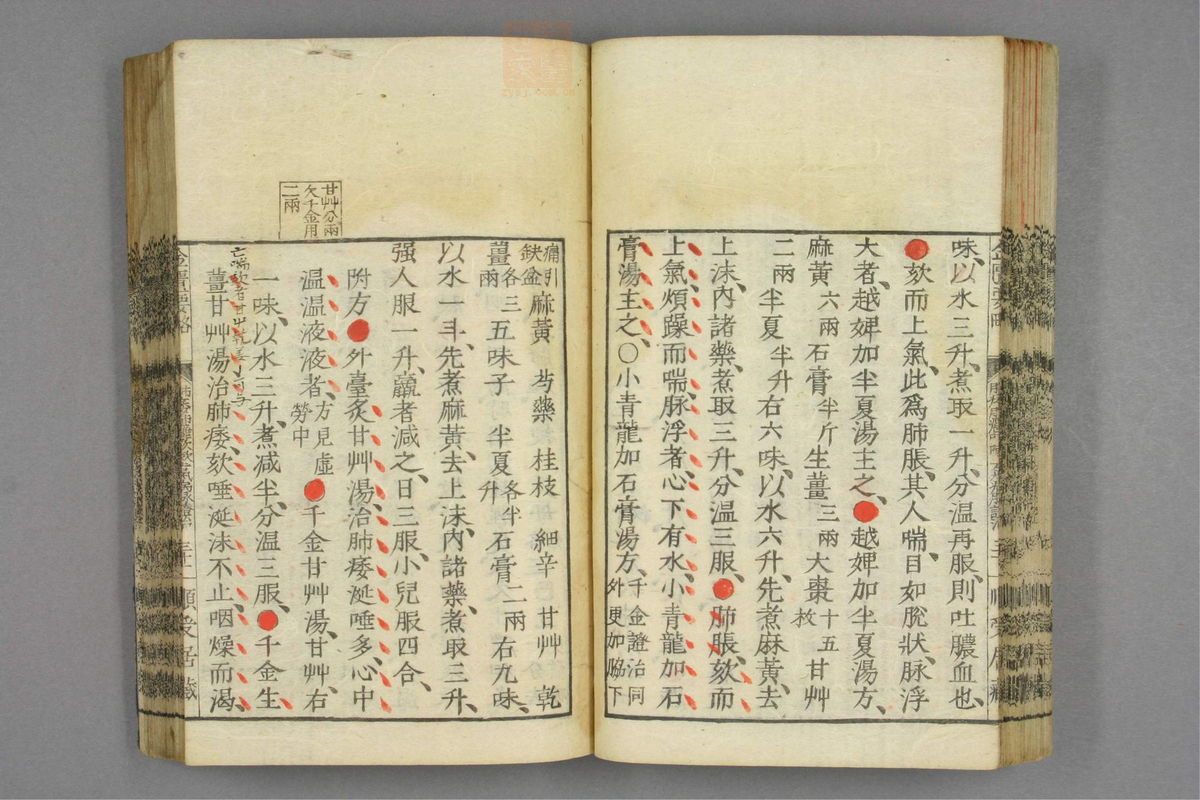 味、以水三升、煮取一升、分溫再服、則吐膿血也、
欬而上氣、此爲肺脹、其人喘、目如脫狀、脉浮
大者、越婢加半夏湯主之、越婢加半夏湯方、
麻黃六兩石膏半斤生薑三兩大棗十五枚甘艸
二兩半夏半升右六味、以水六升、先煮麻黃、去
上沫、內諸藥、煮取三升、分溫三服、肺脹、欬而
上氣、煩躁而喘、脉浮者、心下有水、小青龍加石
膏湯主之、〇小青龍加石膏湯方、千金證治同外更加脇下
痛引缺盆麻黃 芍藥 桂枝 細辛 甘艸 乾
薑各三兩五味子 半夏各半升石膏二兩右九味、
以水一斗、先煮麻黃、去上沫、內諸藥、煮取三升、
强人服一升、羸者減之、日三服、小兒服四合、
附方外臺炙甘艸湯、治肺痿涎唾多、心中
溫溫液液者、方見虛勞中千金甘艸湯、甘艸、右
一味、以水三升、煮减半、分溫三服、千金生
薑甘艸湯治肺痿、欬唾涎沫不止、咽燥而渴、
甘艸分兩
欠千金用
二兩